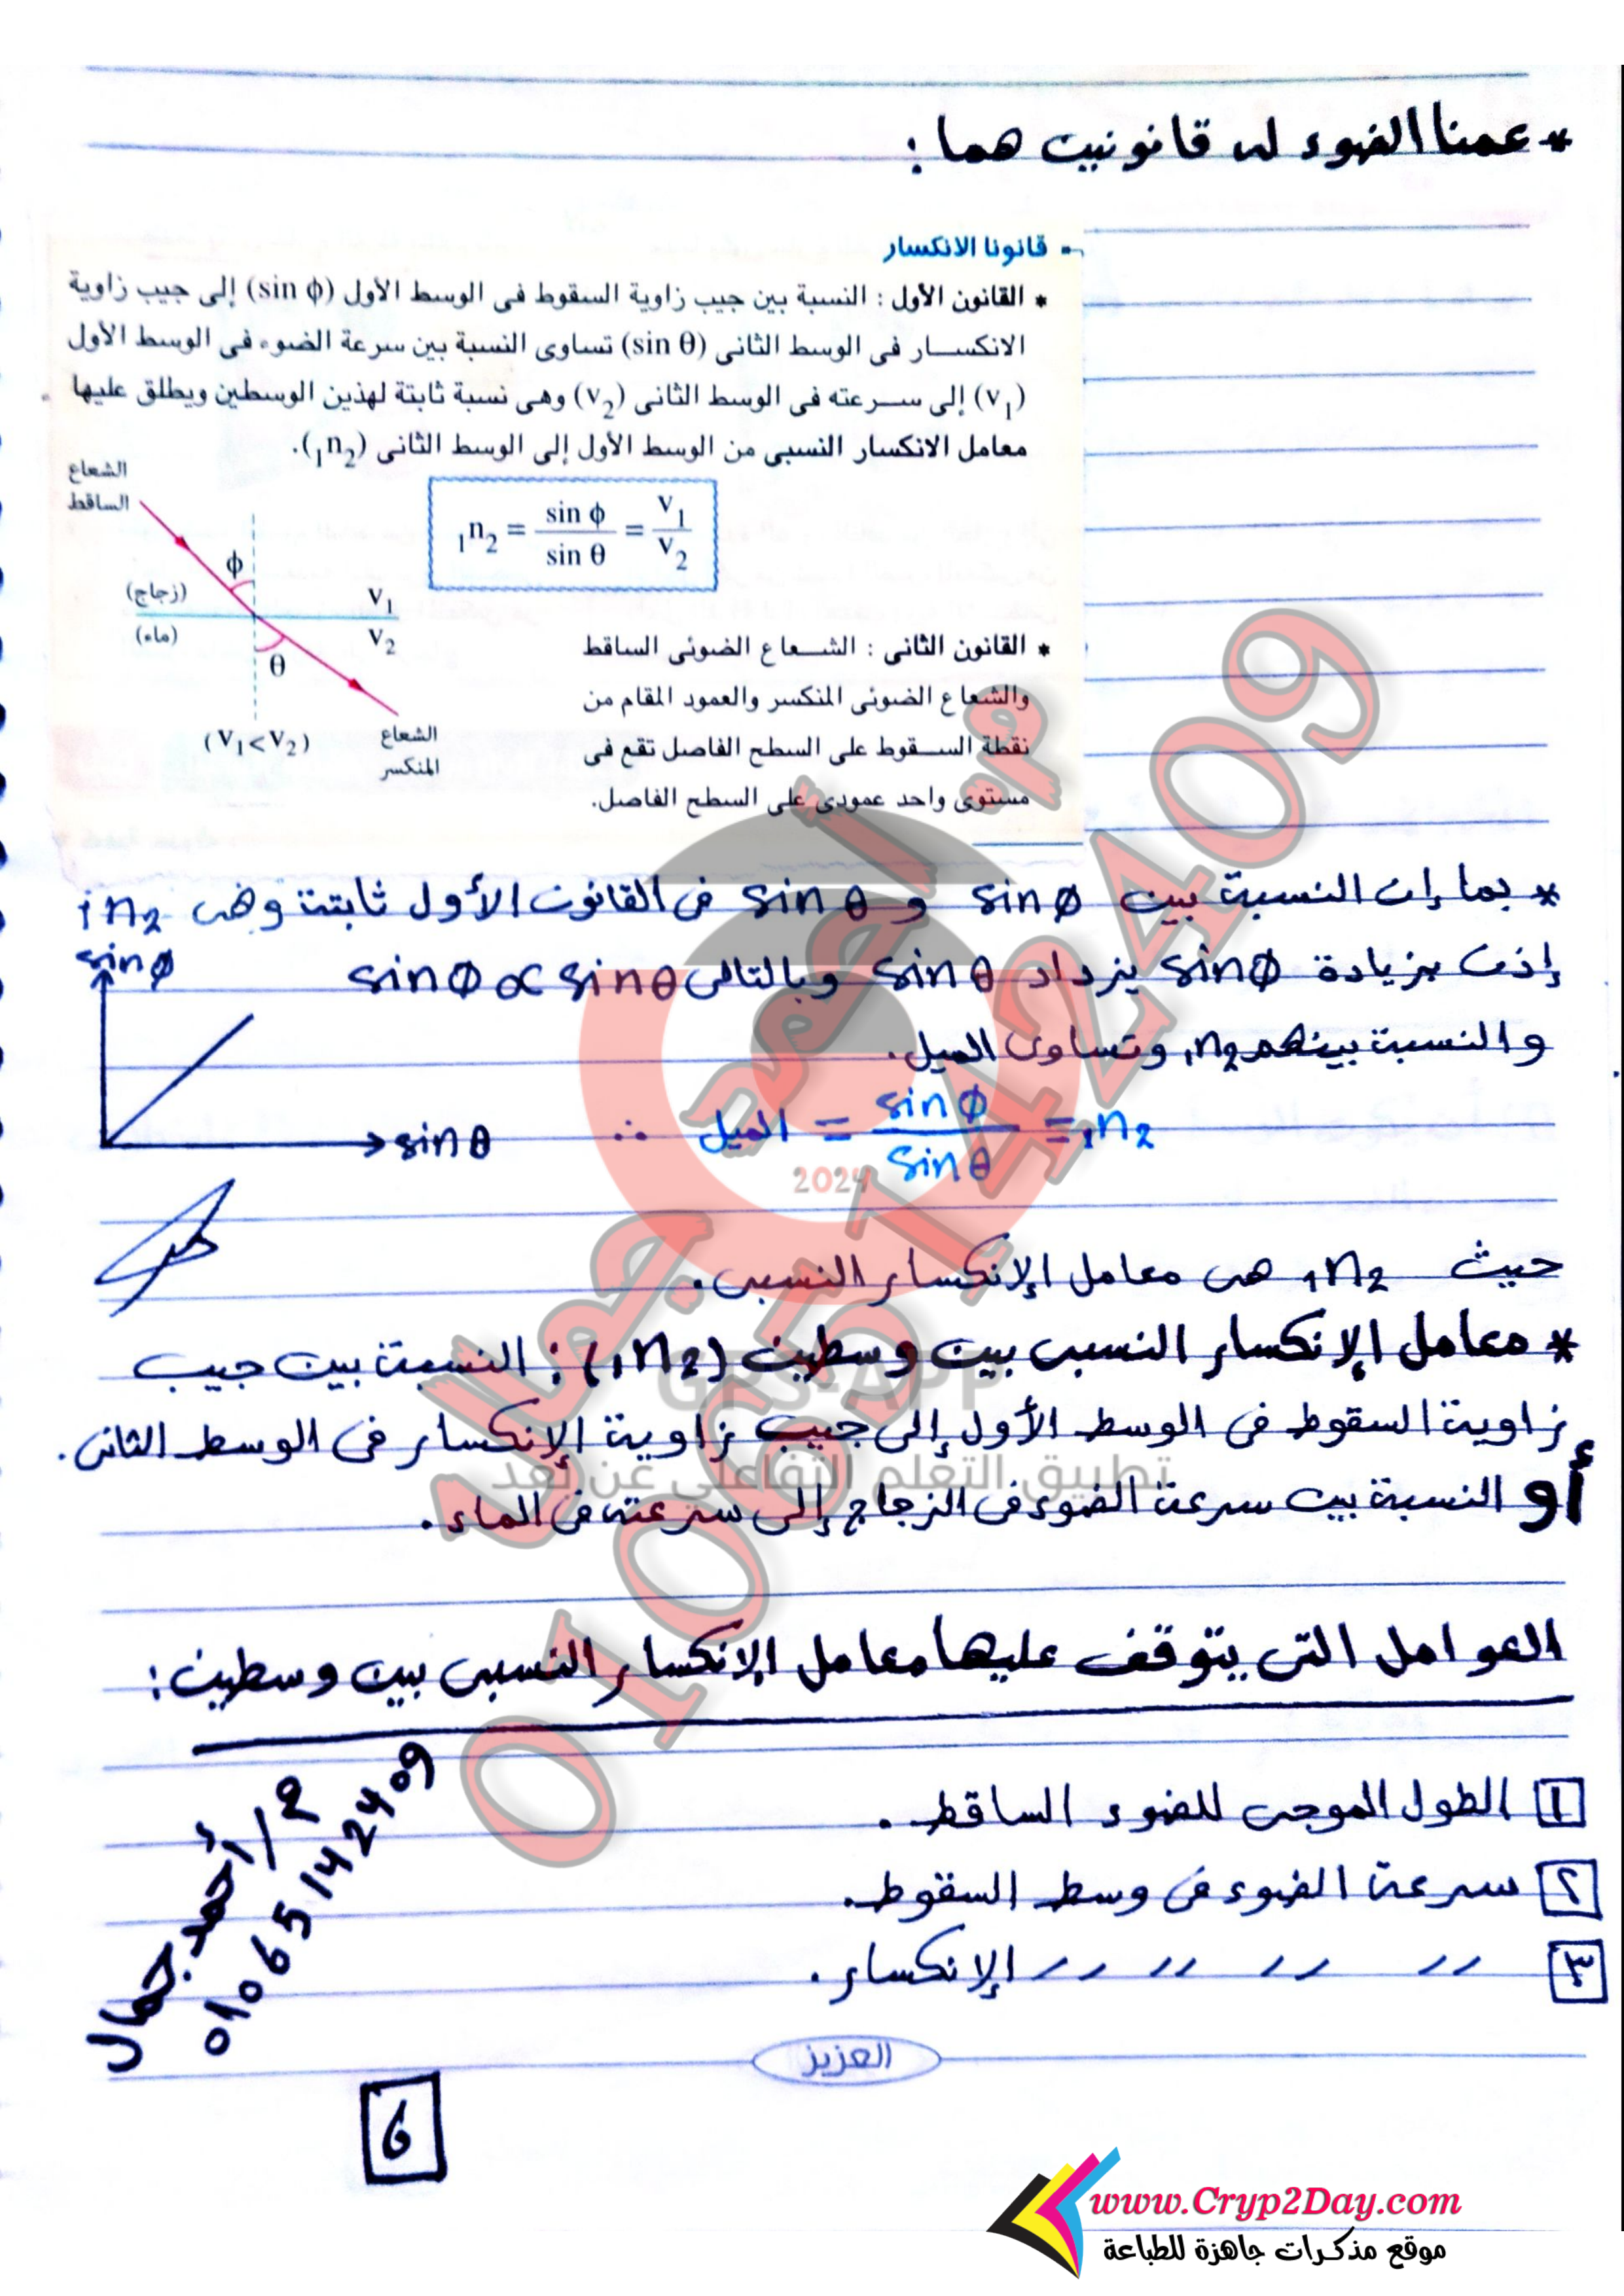 * عمنا الضوء له قانونين هما :
قانونا الانكسار
* القانون الأول : النسبة بين جيب زاوية السقوط فى الوسط الأول (sin ϕ) إلى جيب زاوية
الانكسار فى الوسط الثانى (sin θ) تساوى النسبة بين سرعة الضوء فى الوسط الأول
(v₁) إلى سرعته فى الوسط الثانى (v₂) وهى نسبة ثابتة لهذين الوسطين ويطلق عليها
معامل الانكسار النسبى من الوسط الأول إلى الوسط الثانى (₁n₂).
₁n₂ = sin ϕ / sin θ = v₁ / v₂
الشعاع
الساقط
ϕ
(زجاج)
v₁
(ماء)
v₂
θ
(v₁ < v₂)
الشعاع
المنكسر
* القانون الثانى : الشعاع الضوئى الساقط
والشعاع الضوئى المنكسر والعمود المقام من
نقطة السقوط على السطح الفاصل تقع فى
مستوى واحد عمودى على السطح الفاصل.
* بما إن النسبة بين sin ϕ و sin θ فى القانون الأول ثابتة وهى ₁n₂
إذن بزيادة sin ϕ يزداد sin θ وبالتالى sin ϕ ∝ sin θ
والنسبة بينهم ₁n₂ وتساوى الميل.
sin ϕ
sin θ
∴ الميل = sin ϕ / sin θ = ₁n₂
حيث ₁n₂ هى معامل الإنكسار النسبى.
* معامل الإنكسار النسبى بين وسطين (₁n₂) : النسبة بين جيب
زاوية السقوط فى الوسط الأول إلى جيب زاوية الإنكسار فى الوسط الثانى.
أو النسبة بين سرعة الضوء فى الزجاج إلى سرعته فى الماء.
العوامل التى يتوقف عليها معامل الإنكسار النسبى بين وسطين :
١ الطول الموجى للضوء الساقط.
٢ سرعة الضوء فى وسط السقوط.
٣ 〃 〃 〃 〃 الإنكسار.
م / أحمد جمال
01065142409
العزيز
6
م. أحمد جمال
01065142409
2024
GPS-APP
تطبيق التعلم التفاعلى عن بعد
www.Cryp2Day.com
موقع مذكرات جاهزة للطباعة